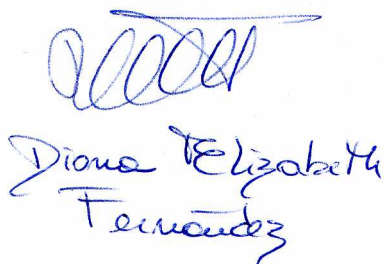 Diana Elizabeth
Fernández